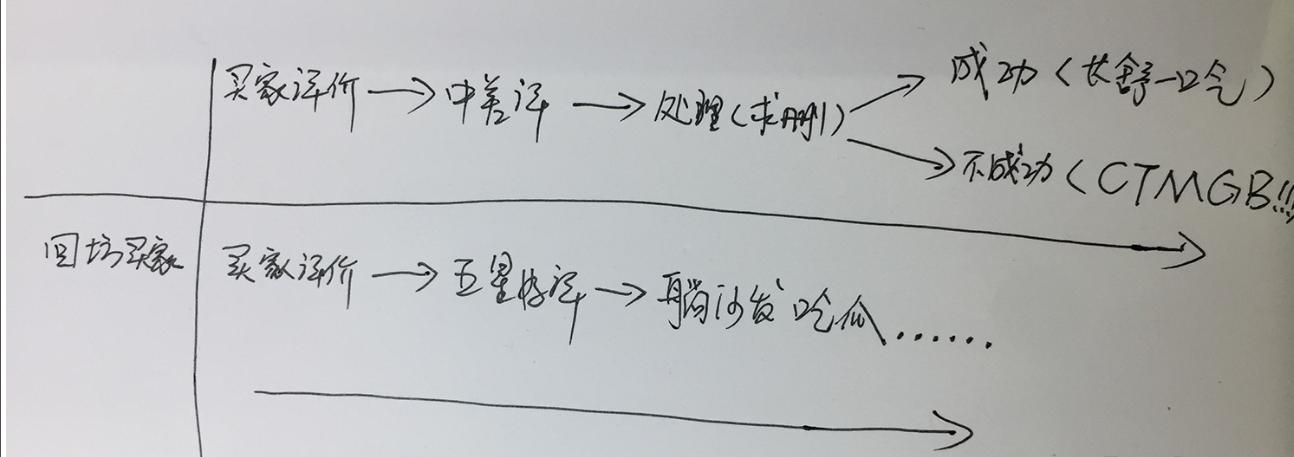 买家评价→中差评→处理(求删)
成功(长舒一口气)
不成功(CTMGB!!!
回访买家
买家评价→五星好评→躺沙发吃瓜......